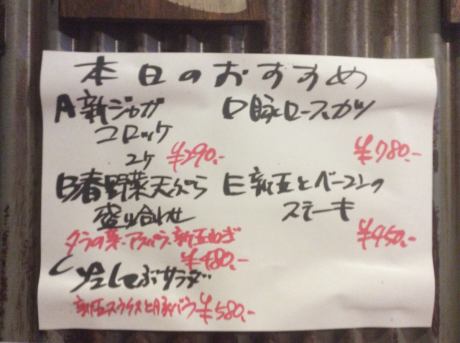 本日のおすすめ
A新ジャガ
コロッケ
2ケ ¥290.-
B春野菜天ぷら
盛り合わせ
タラの芽・アスパラ・新玉ねぎ
¥480.-
C 冷しゃぶサラダ
新玉スライスと豚バラ ¥580.-
D豚ロースカツ
¥780.-
E新玉とベーコンの
ステーキ
¥450.-